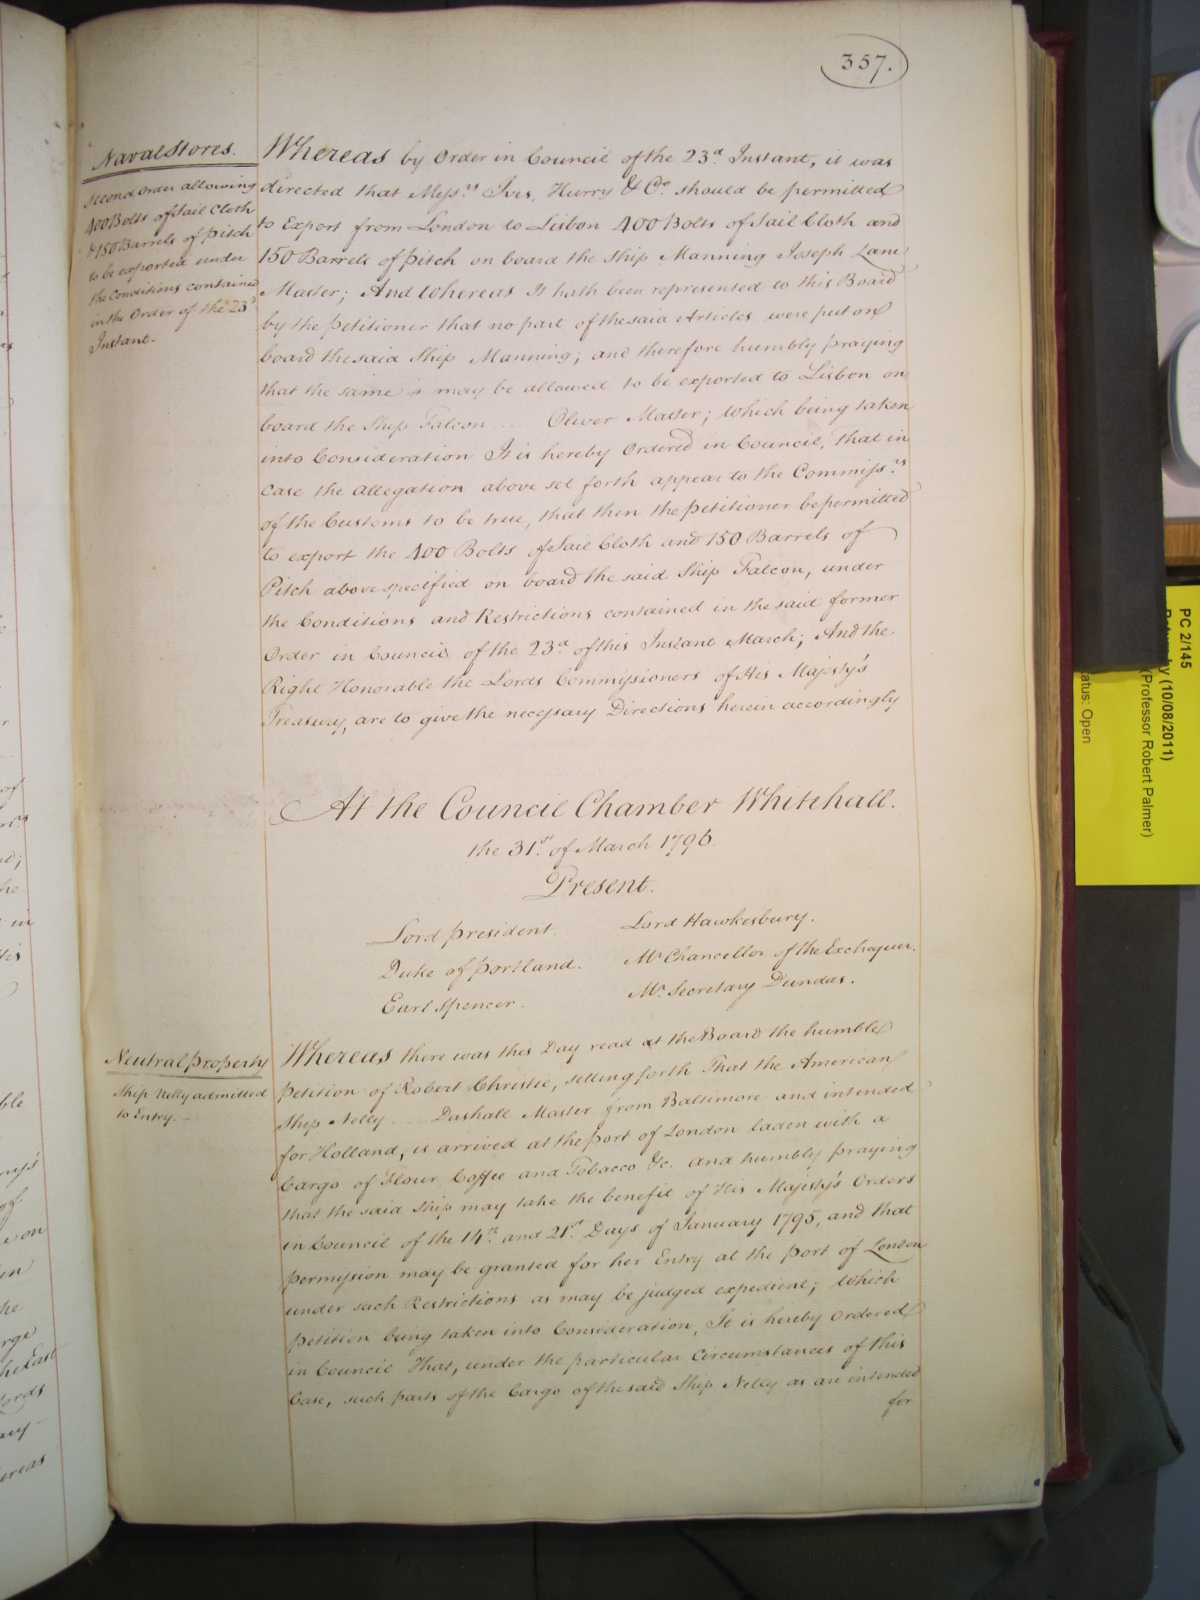 357.
Naval Stores.
Second Order allowing
400 Bolts of Sail Cloth
& 150 Barrels of Pitch
to be exported under
the Conditions contained
in the Order of the 23d
Instant.
Whereas by Order in Council of the 23d. Instant, it was
directed that Messrs. Ives, Hurry & Co. should be permitted
to Export from London to Lisbon 400 Bolts of Sail Cloth and
150 Barrels of Pitch on board the Ship Manning Joseph Lane
Master; And Whereas It hath been represented to this Board
by the Petitioner that no part of the said Articles were put on
board the said Ship Manning; and therefore humbly praying
that the same may be allowed to be exported to Lisbon on
board the Ship Falcon .... Oliver Master; Which being taken
into Consideration It is hereby Ordered in Council, That in
Case the Allegation above set forth appear to the Commissrs.
of the Customs to be true, that then the Petitioner be permitted
to export the 400 Bolts of Sail Cloth and 150 Barrels of
Pitch above specified on board the said Ship Falcon, under
the Conditions and Restrictions contained in the said former
Order in Council of the 23d. of this Instant March; And the
Right Honorable the Lords Commissioners of His Majesty's
Treasury, are to give the necessary Directions herein accordingly
At the Council Chamber Whitehall.
the 31st. of March 1796.
Present.
Lord President.
Duke of Portland.
Earl Spencer.
Lord Hawkesbury.
Mr. Chancellor of the Exchequer.
Mr. Secretary Dundas.
Neutral property
Ship Nelly admitted
to Entry.
Whereas there was this Day read at the Board the humble
Petition of Robert Christie, setting forth That the American
Ship Nelly .... Dashall Master from Baltimore and intended
for Holland, is arrived at the Port of London laden with a
Cargo of Flour, Coffee and Tobacco &c. and humbly praying
that the said Ship may take the benefit of His Majesty's Orders
in Council of the 14th. and 21st. Days of January 1795, and that
permission may be granted for her Entry at the Port of London
under such Restrictions as may be judged expedient; Which
Petition being taken into Consideration, It is hereby Ordered
in Council That, under the particular Circumstances of this
Case, such parts of the Cargo of the said Ship Nelly as are intended
for
PC 2/145
by (10/08/2011)
(Professor Robert Palmer)
atus: Open